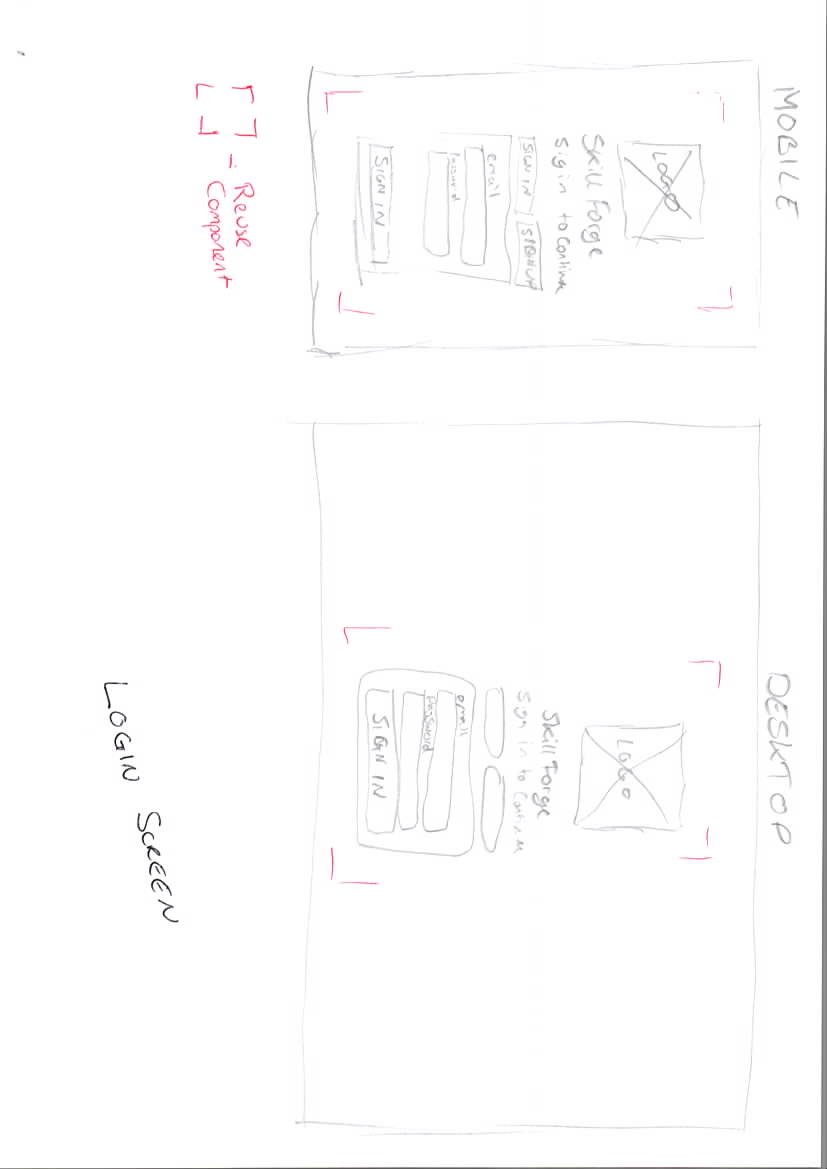 MOBILE
LOGO
Skill Forge
Sigin to Continue
SIGN IN
SIGNUP
email
password
SIGN IN
[ ] - Reuse
Component
DESKTOP
LOGO
Skill Forge
Sign in to Continue
email
password
SIGN IN
LOGIN SCREEN